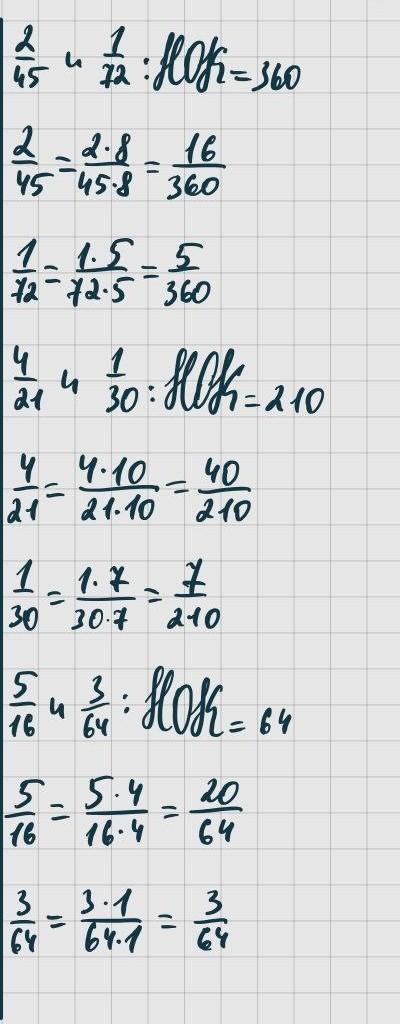 2/45 и 1/72 : НОК = 360
2/45 = 2·8/45·8 = 16/360
1/72 = 1·5/72·5 = 5/360
4/21 и 1/30 : НОК = 210
4/21 = 4·10/21·10 = 40/210
1/30 = 1·7/30·7 = 7/210
5/16 и 3/64 : НОК = 64
5/16 = 5·4/16·4 = 20/64
3/64 = 3·1/64·1 = 3/64